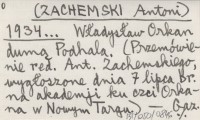 (ZACHEMSKI Antoni)
1934... Władysław Orkan
dumą Podhala. (Przemówie-
nie red. Ant. Zachemskiego,
wygłoszone dnia 7 lipca br.
na akademji ku czci Orka-
na w Nowym Targu) — Gaz.